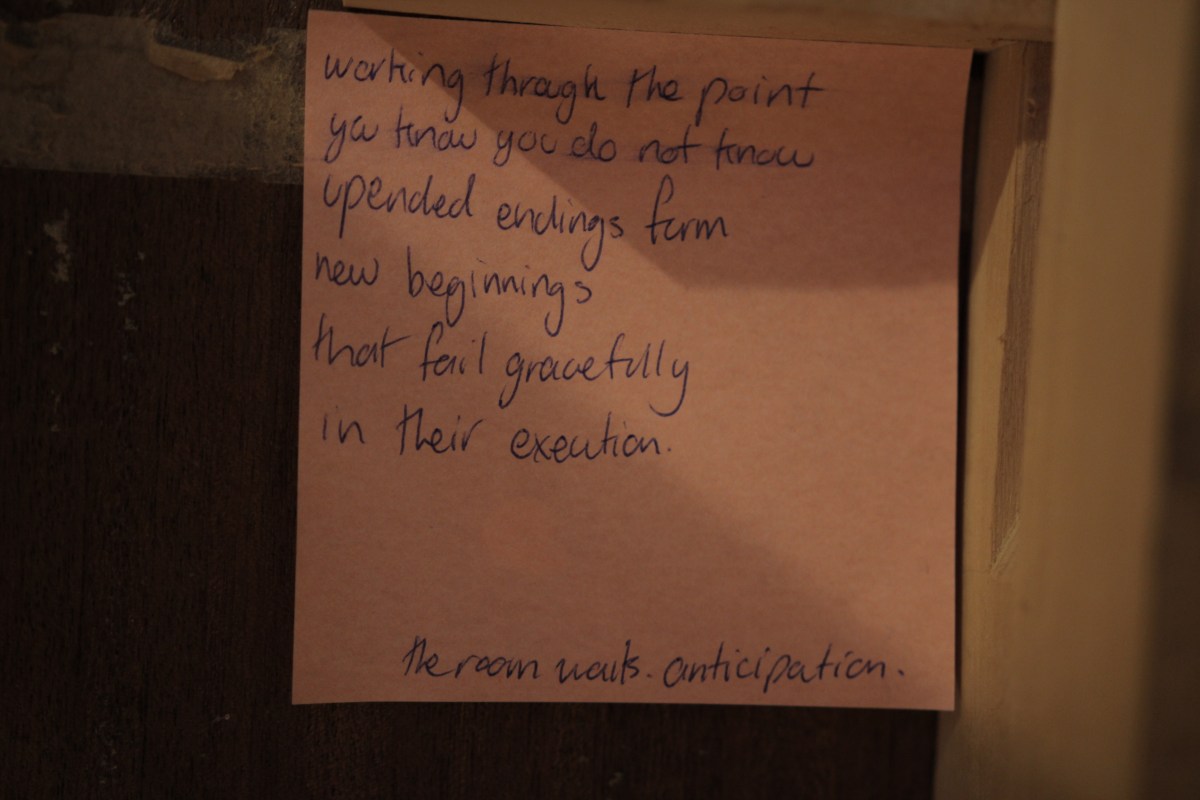 working through the point
you know you do not know
upended endings form
new beginnings
that fail gracefully
in their execution.
the room waits. anticipation.